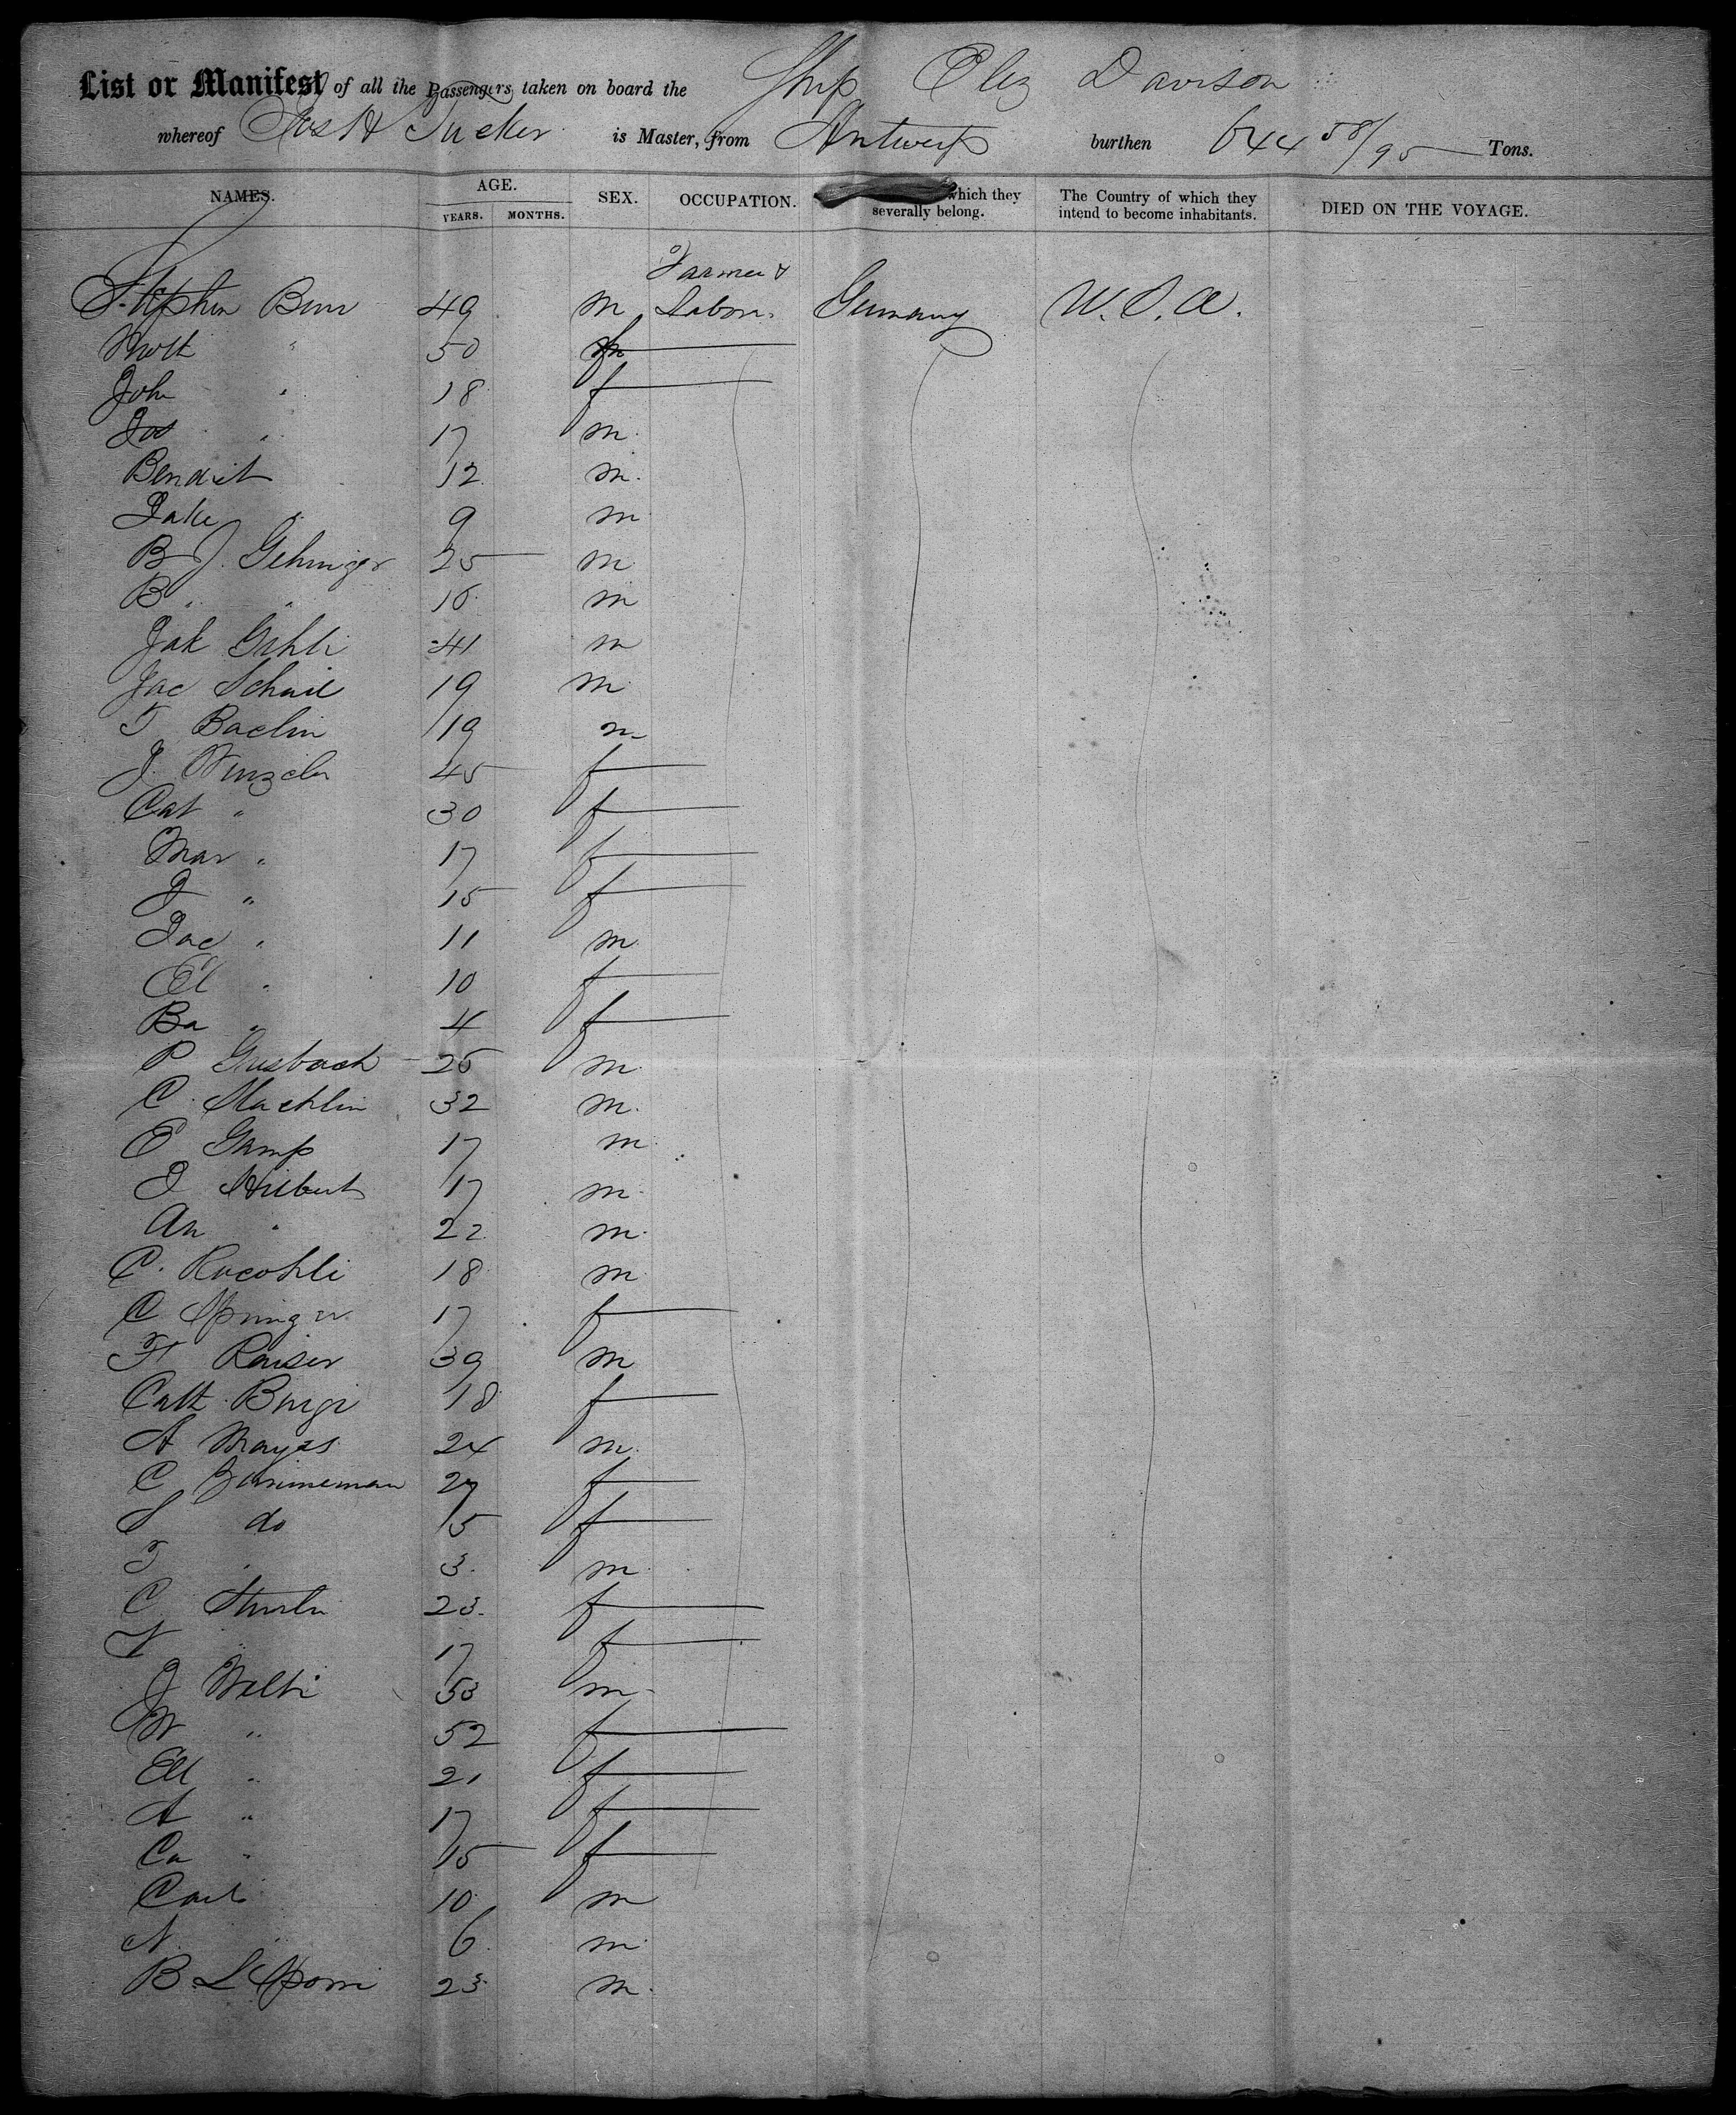 List or Manifest of all the Passengers taken on board the Ship Eliz Davison
whereof Jas H Tucker is Master, from Antwerp burthen 644 58/95 Tons.
NAMES. AGE. YEARS. MONTHS. SEX. OCCUPATION. which they severally belong. The Country of which they intend to become inhabitants. DIED ON THE VOYAGE.
Farmer &
Stephen 49 m Labor. Germany U.S.A.
" 50
John " 18 f
Jos " 17 m
Benedict 12 m.
Jake " 9 m
B J. Gehringer 25 m
B " " 16 m
Jak 41 m
Jac 19 m
T Baclin 19 m
J. Wenzeler 45 f
Cat " 30 f
Mar " 17 f
J " 15 f
Jac " 11 m
El " 10 f
Ba " 4 f
P Griesbach 25 m
C. 32 m.
E Gamp 17 m
J Hilbert 17 m
An " 22 m.
C. 18 m
C Springer 17 f
F Raiser 39 m
Cath Burgi 18 f
A Mayes 24 m.
C Zimmerman 27 f
S do 15 f
T " 3. m
C 23. f
17 f
J Welti 53 m
W " 52 f
Ell " 21 f
A " 17 f
Ca " 15 f
Carl 10 m
N " 6 m
B 23 m.